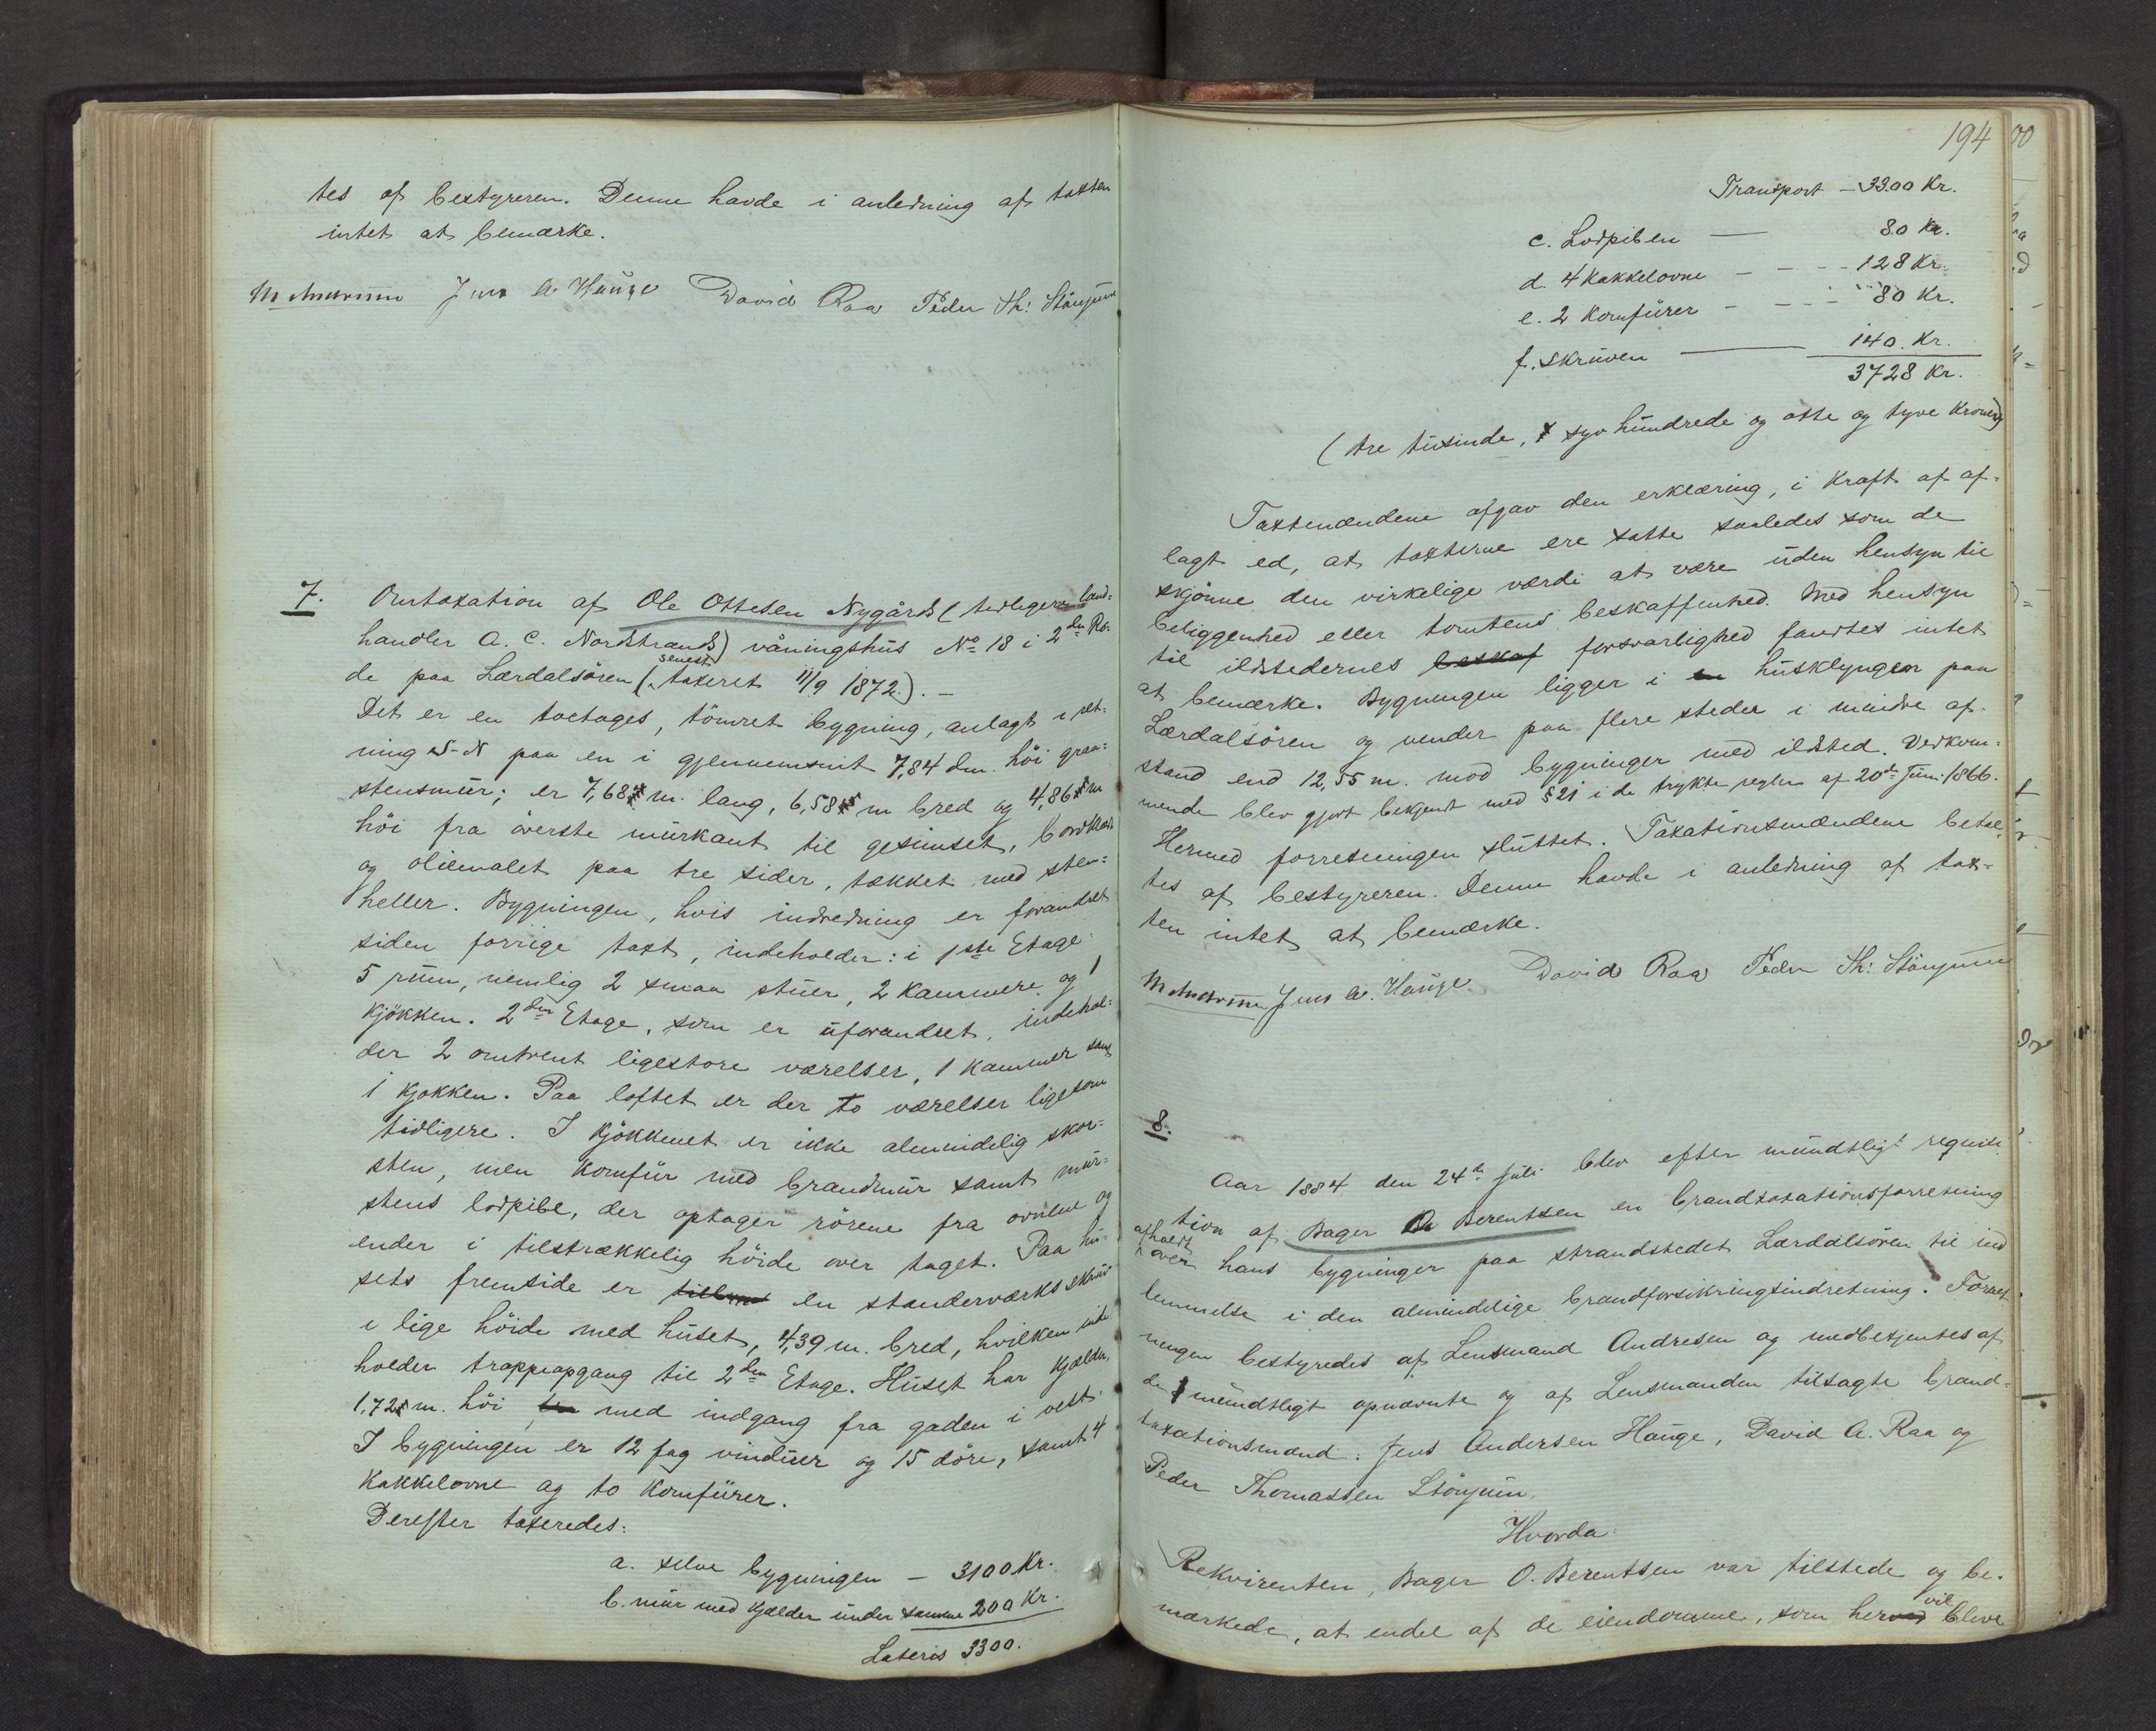 tes af bestyreren. Denne havde i anledning af taxten
intet at bemærke.
M Andresen Jens A Hauge David Raa Peder Th: Stönjum
7. Omtaxation af Ole Ottesen Nygårds (tidligere land-
handler A. C. Nordstrands) våningshus No 18 i 2den Ro-
de paa Lærdalsören (senest taxeret 11/9 1872). —
Det er en toetages, tömret bygning, anlagt i ret-
ning S-N paa en i gjennemsnit 7,84 dm. höi graa-
stensmur; er 7,68 m. lang, 6,58 m bred og 4,86 m
höi fra överste murkant til gesimset, bordklædt
og oliemalet paa tre sider, tækket med sten-
heller. Bygningen, hvis indredning er forandret
siden forrige taxt, indeholder: i 1ste Etage:
5 rum, nemlig 2 smaa stuer, 2 kammere og 1
kjökken. 2den Etage, som er uforandret, indehol-
der 2 omtrent ligestore værelser, 1 kammer samt
1 kjökken. Paa loftet er der to værelser ligesom
tidligere. I kjökkenet er ikke almindelig skor-
sten, men komfur med brandmur samt mur-
stens lodpibe, der optager rörene fra ovnene og
ender i tilstrækkelig höide over taget. Paa hu-
sets fremside er en standerværks skruv
i lige höide med huset, 4,39 m. bred, hvilken inde-
holder trappeopgang til 2den Etage. Huset har kjelder,
1,72 m. höi med indgang fra gaden i vest.
I bygningen er 12 fag vinduer og 15 döre, samt 4
kakkelovne og to komfurer.
Derefter taxeredes:
a. selve bygningen — 3100 Kr.
b. mur med kjælder under samme 200 Kr.
Lateris 3300.
194
Transport — 3300 Kr.
c. Lodpiben — 80 Kr.
d. 4 kakkelovne — — — 128 Kr.
e. 2 komfurer — — — 80 Kr.
f. skruven — 140. Kr.
3728 Kr.
(tre tusinde, syv hundrede og otte og tyve kroner)
Taxtmændene afgav den erklæring, i kraft af af-
lagt ed, at taxterne ere satte saaledes som de
skjönne den virkelige værdi at være uden hensyn til
beliggenhed eller tomtens beskaffenhed. Med hensyn
til ildstedernes forsvarlighed fandtes intet
at bemærke. Bygningen ligger i husklyngen paa
Lærdalsören og vender paa flere steder i mindre af-
stand end 12,55 m. mod bygninger med ildsted. Vedkom-
mende blev gjort bekjendt med § 21 i de trykte regler af 20de Juni 1866.
Hermed forretningen sluttet. Taxationsmændene betal-
tes af bestyreren. Denne havde i anledning af tax-
ten intet at bemærke.
M Andresen Jens A. Hauge David Raa Peder Th: Stönjum
8.
Aar 1884 den 24de juli blev efter mundtligt requisi-
tion af Bager O Berentsen en brandtaxationsforretning
afholdt over hans bygninger paa strandstedet Lærdalsören til ind
lemmelse i den almindelige brandforsikringsindretning. Forret-
ningen bestyredes af Lensmand Andresen og medbetjentes af
de mundtligt opnævnte og af Lensmanden tilsagte brand-
taxationsmænd: Jens Andersen Hauge, David A. Raa og
Peder Thomassen Stönjum.
Hvorda:
Rekvirenten, Bager O. Berentsen var tilstede og be-
mærkede, at endel af de eiendomme, som her vil blive